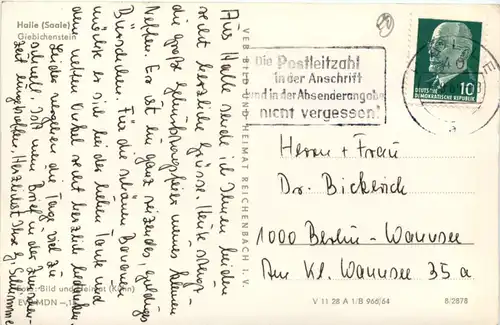 Halle (Saale)
Giebichenstein
Aus Halle sende ich Ihnen beiden
recht herzliche Grüsse. Heute steigt
die große Geburtstagsfeier meines kleinen
Neffen. Er ist ein ganz reizendes, goldiges
Bürschchen. Für die schöne
möchte er sich bei der lieben Tante und
dem netten Onkel recht herzlich bedanken.
Leider vergehen die Tage viel zu
schnell. Daß mein Brief in der
Zeit eingetroffen. Herzlichst Ihre
Foto: Bild und Heimat (Kühn)
EVP MDN -,15
VEB BILD UND HEIMAT REICHENBACH I. V.
Die Postleitzahl
in der Anschrift
und in der Absenderangabe
nicht vergessen!
DEUTSCHE
DEMOKRATISCHE REPUBLIK 10
Herrn + Frau
Dr. Bickerich
1000 Berlin-Wannsee
Am Kl. Wannsee 35 a
V 11 28 A 1/B 966/64
8/2878